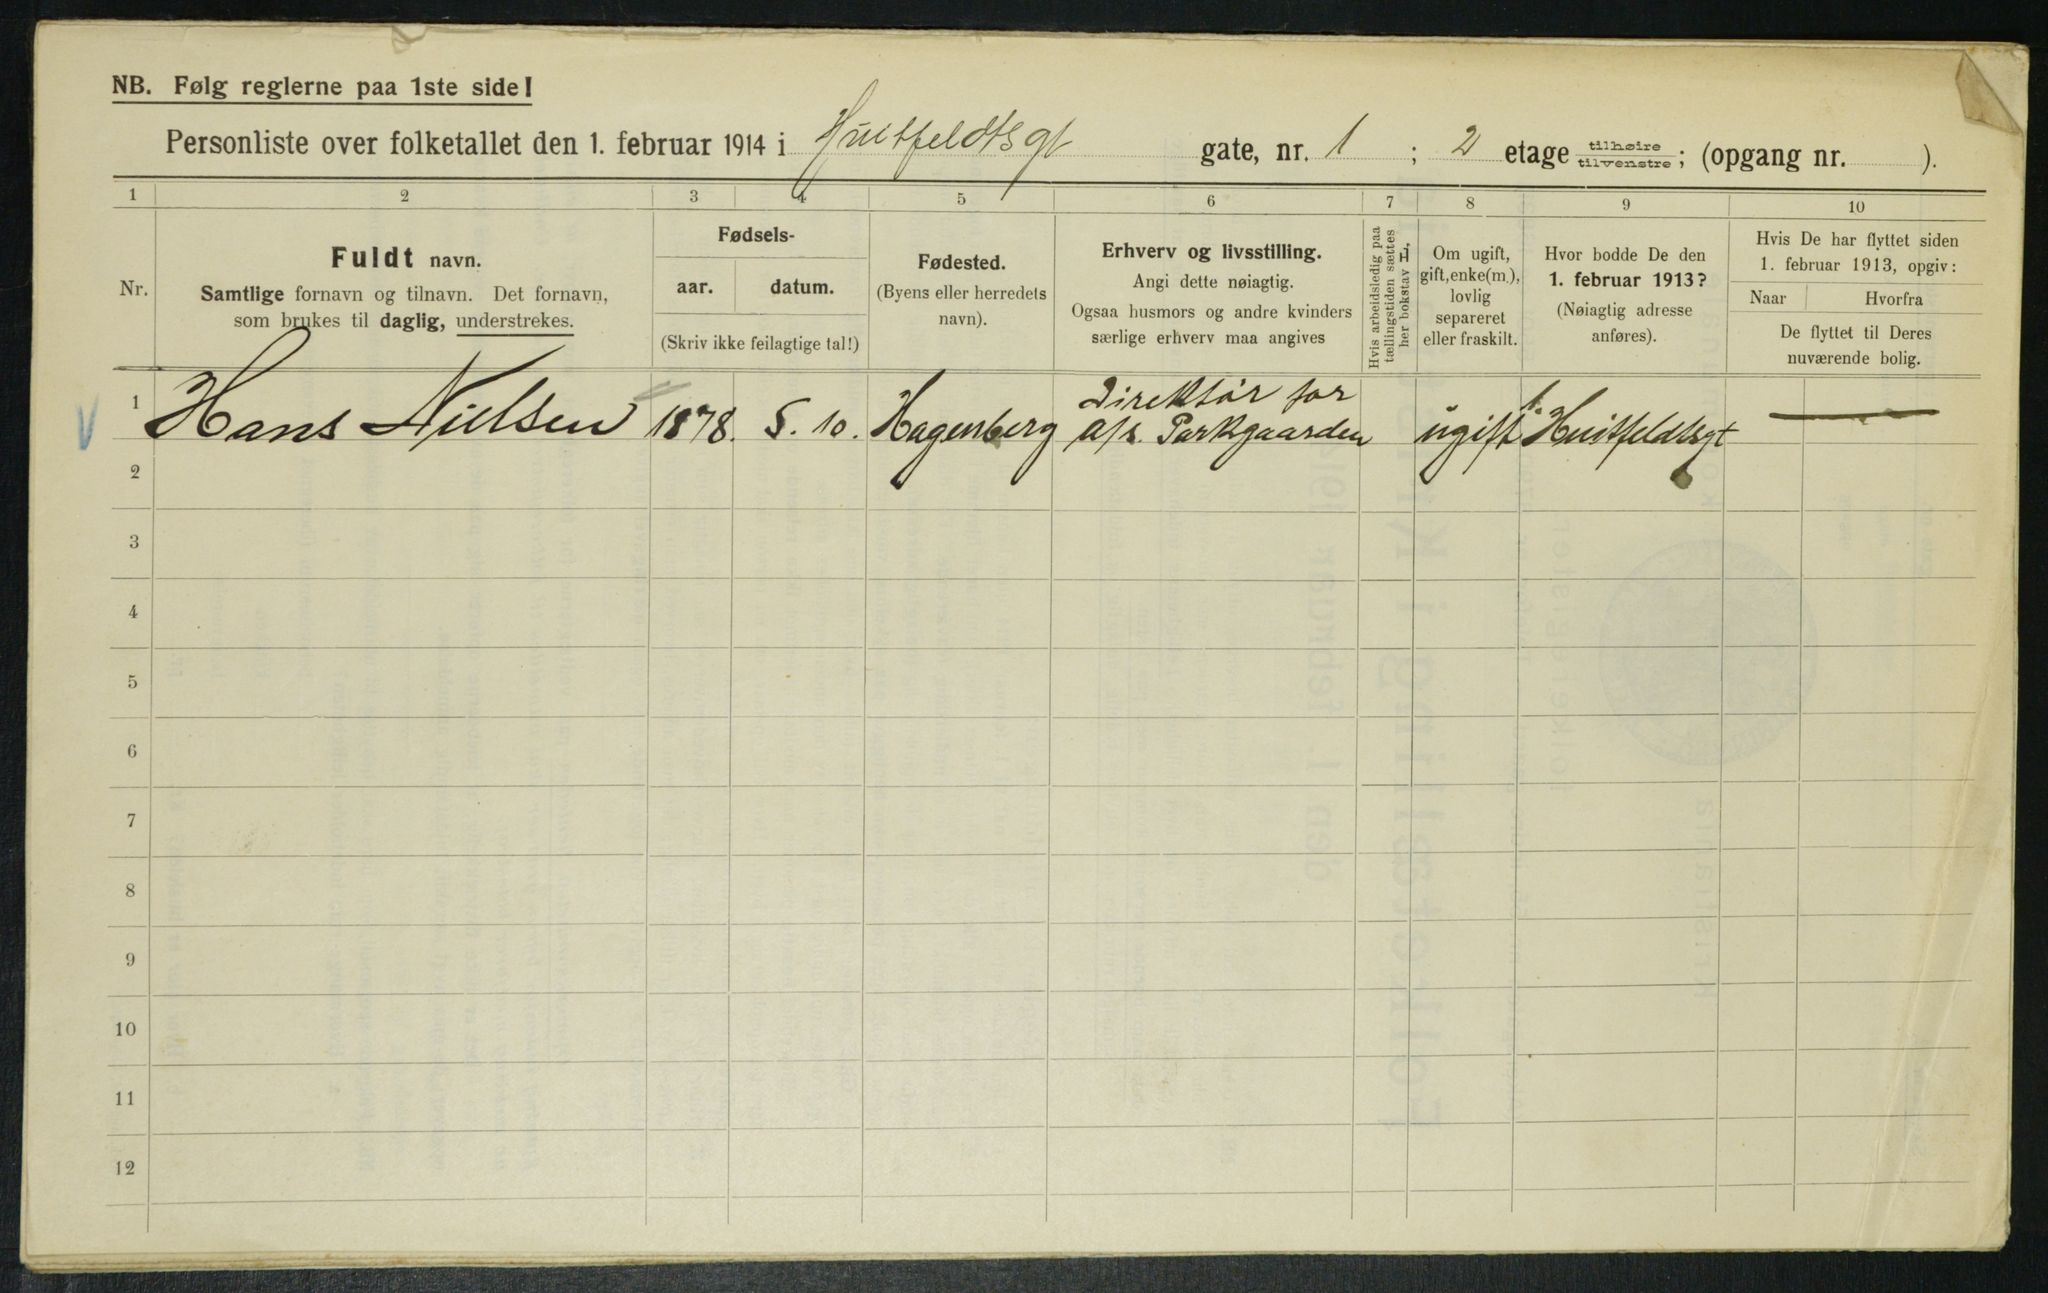 NB. Følg reglerne paa 1ste side!
Personliste over folketallet den 1. februar 1914 i Huitfeldtsgt gate, nr. 1 ; 2 etage tilhøire tilvenstre ; (opgang nr. ).
1 2 3 4 5 6 7 8 9 10
Nr.
Fuldt navn.
Samtlige fornavn og tilnavn. Det fornavn,
som brukes til daglig, understrekes.
Fødsels-
aar. datum.
(Skriv ikke feilagtige tal!)
Fødested.
(Byens eller herredets
navn).
Erhverv og livsstilling.
Angi dette nøiagtig.
Ogsaa husmors og andre kvinders
særlige erhverv maa angives
Hvis arbeidsledig paa
tællingstiden sættes
her bokstav L,
Om ugift,
gift, enke(m.),
lovlig
separeret
eller fraskilt.
Hvor bodde De den
1. februar 1913?
(Nøiagtig adresse
anføres).
Hvis De har flyttet siden
1. februar 1913, opgiv:
Naar Hvorfra
De flyttet til Deres
nuværende bolig.
1 Hans Nielsen 1878. 5. 10. Hagenberg Direktør for
a/s. Parkgaarden ugift 1. Huitfeldtsgt —
2
3
4
5
6
7
8
9
10
11
12